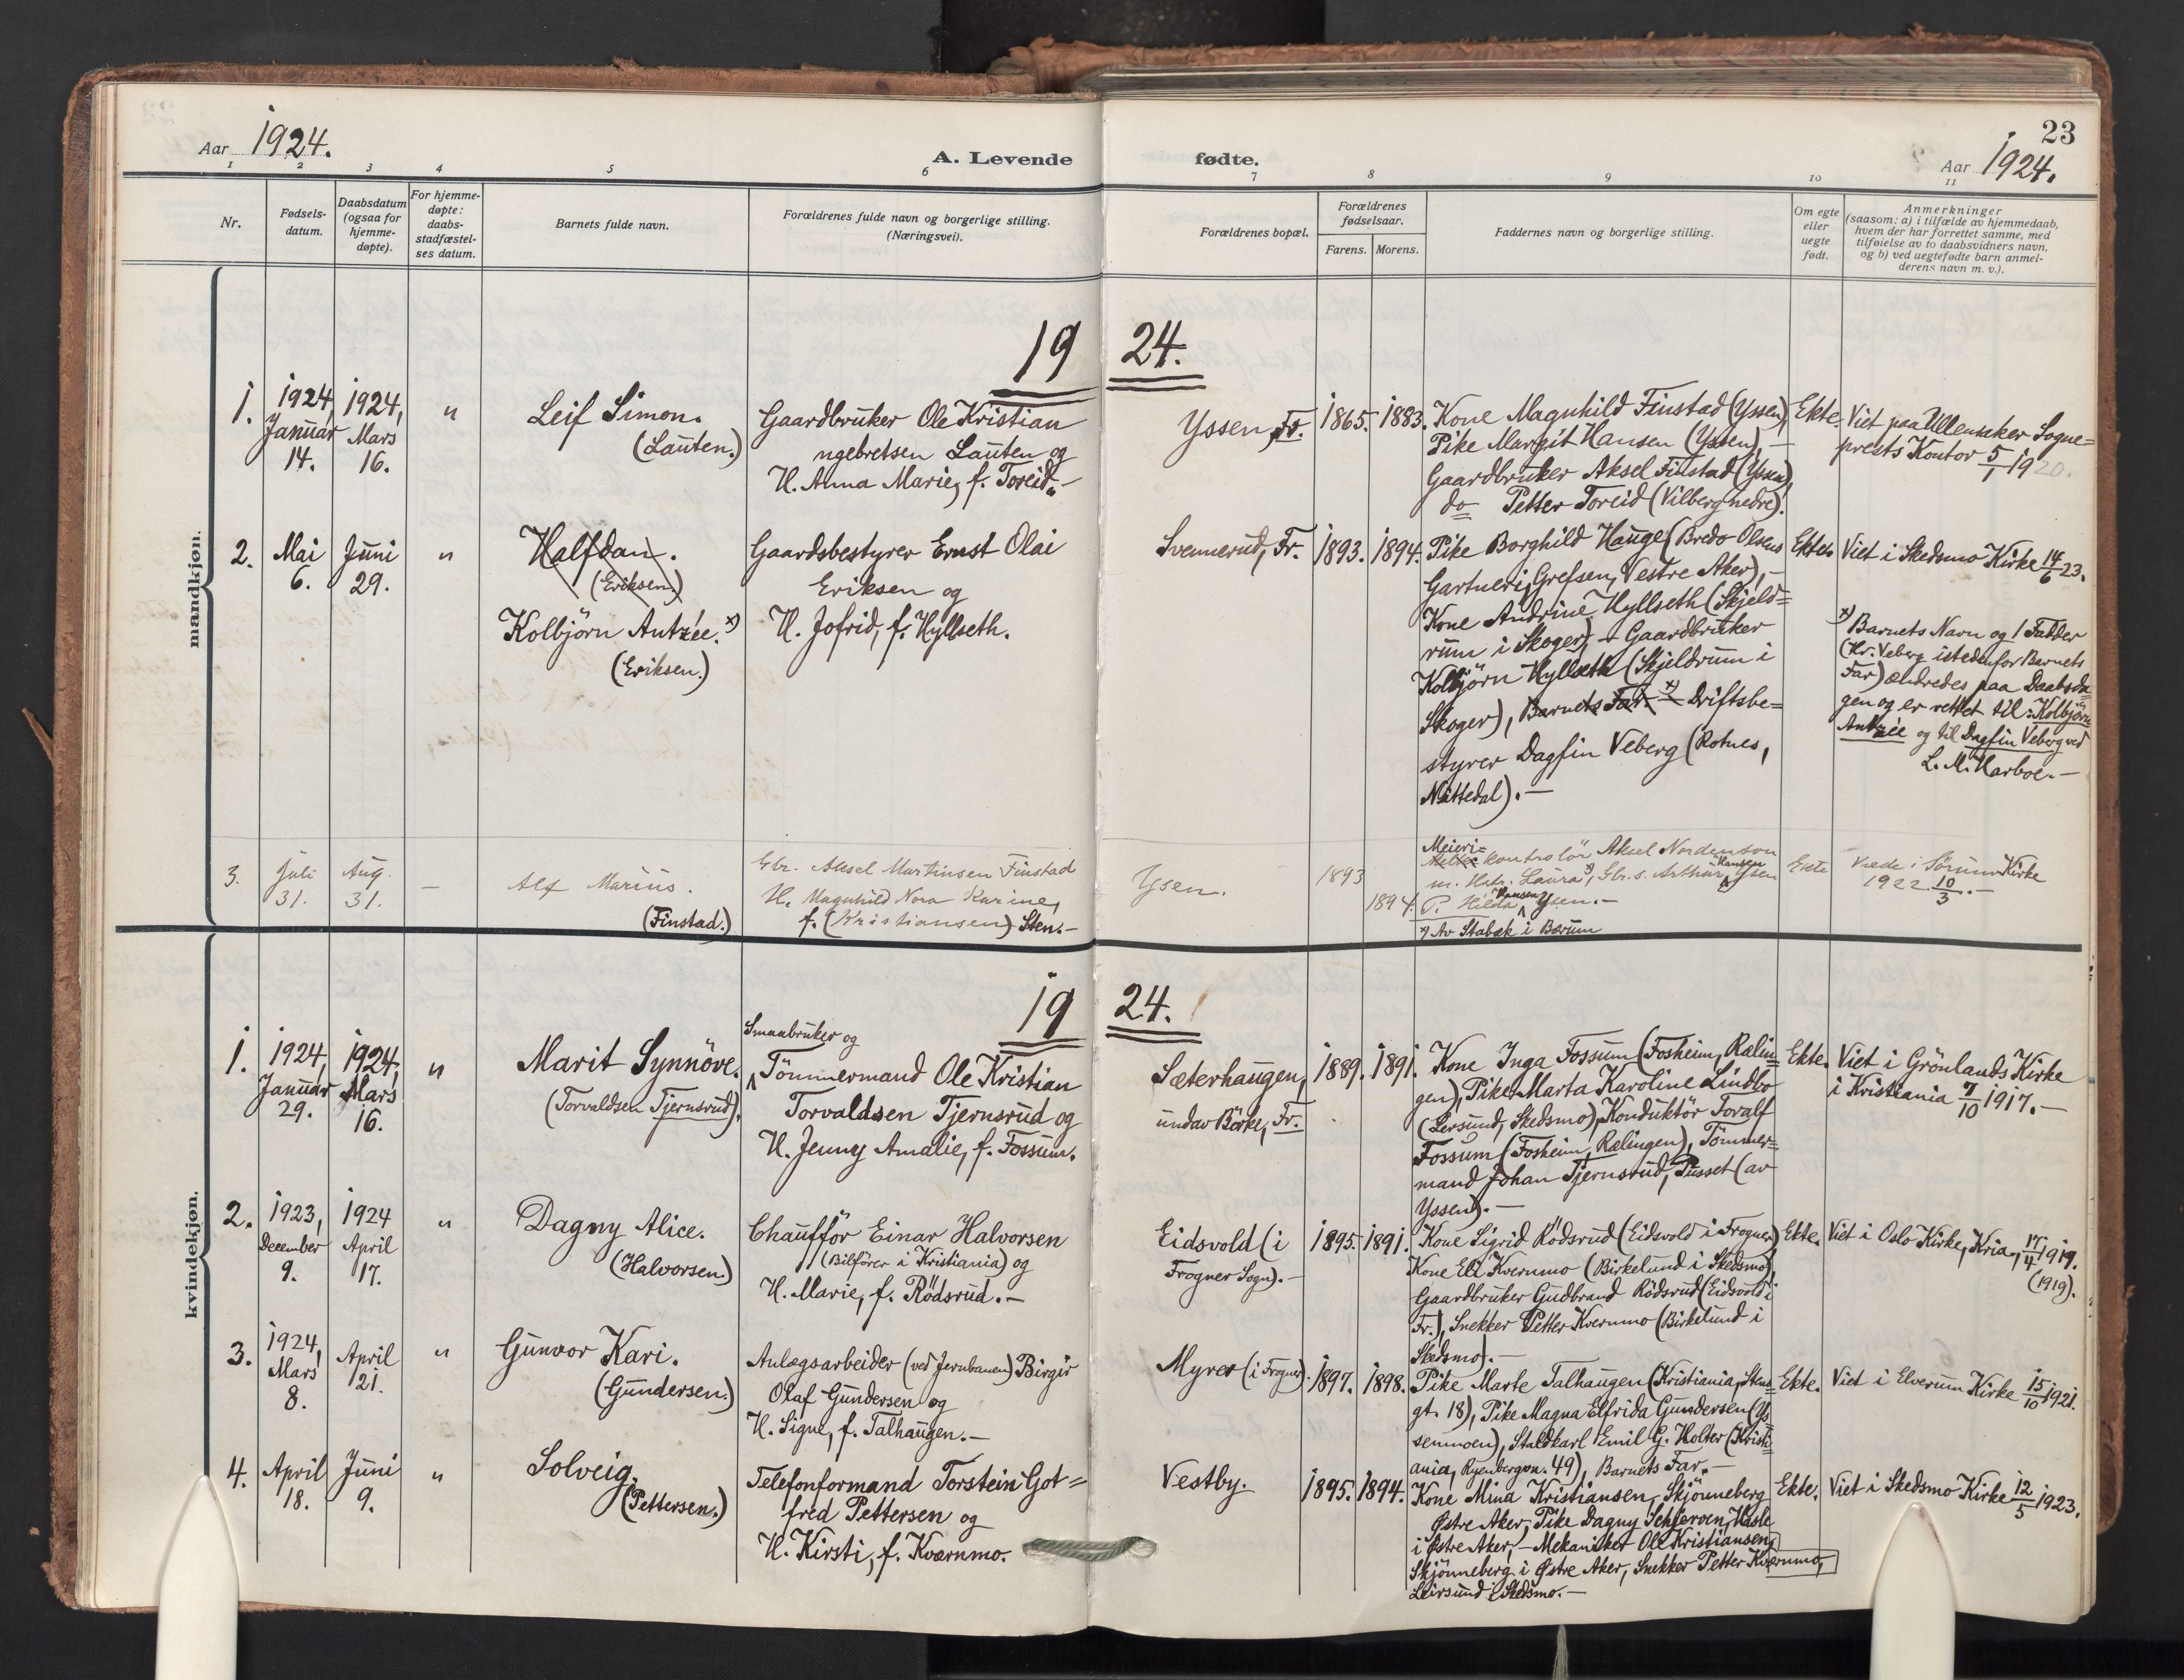 Aar 1924.
A. Levende fødte.
23
Aar 1924.
1 2 3 4 5 6 7 8 9 10 11
Nr.
Fødsels-
datum.
Daabsdatum
(ogsaa for
hjemme-
døpte).
For hjemme-
døpte:
daabs-
stadfæstel-
ses datum.
Barnets fulde navn.
Forældrenes fulde navn og borgerlige stilling.
(Næringsvei).
Forældrenes bopæl.
Forældrenes
fødselsaar.
Farens. Morens.
Faddernes navn og borgerlige stilling.
Om egte
eller
uegte
født.
Anmerkninger
(saasom: a) i tilfælde av hjemmedaab,
hvem der har forrettet samme, med
tilføielse av to daabsvidners navn,
og b) ved uegtefødte barn anmel-
derens navn m. v.).
mandkjøn.
1924.
1.
1924,
Januar
14.
1924,
Mars
16.
"
Leif Simon.
(Lauten.)
Gaardbruker Ole Kristian
ngebretsen Lauten og
H. Anna Marie, f. Toreid.-
Yssen, Fr.
1865. 1883.
Kone Magnhild Finstad (Yssen),
Pike Margit Hansen (Yssen), -
Gaardbruker Aksel Finstad (Yssen),
do Petter Toreid (Vilberg nedre).
Ekte.
Viet paa Ullensaker Sogne=
prests Kontor 5/1 1920.
2.
Mai
6.
Juni
29.
"
Halfdan.
(Eriksen)
Kolbjörn Antzée. x)
(Eriksen.)
Gaardsbestyrer Ernst Olai
Eriksen og
H. Jofrid, f. Hyllseth.
Svennerud, Fr.
1893. 1894.
Pike Borghild Hauge (Bredo Olsens
Gartneri, Grefsen, Vestre Aker), -
Kone Andrine Hyllseth (Skjeld=
rum i Skoger), - Gaardbruker
Kolbjörn Hyllseth (Skjeldrum i
Skoger), Barnets Far. x) - Driftsbe=
styrer Dagfin Veberg (Rotnes,
Nittedal). -
Ekte.
Viet i Skedsmo Kirke 14/6 23.
x) Barnets Navn og 1 Fadder
(Hr. Veberg istedenfor Barnets
Far) ændredes paa Daabsda=
gen og er rettet til: Kolbjörn
Antzée og til Dagfin Veberg ved
L. M. Harboe. -
3.
Juli
31.
Aug.
31.
-
Alf Marius.
(Finstad.)
Gbr. Aksel Martinsen Finstad
H. Magnhild Nora Karine,
f. (Kristiansen) Sten. -
Ysen.
1893
1894.
Meieri=
kontrolör Aksel Nordenson
m. Hstr. Laura x), Gbr. s. Arthur Hansen Ysen
P. Hilda Hansen Ysen. -
x) Av Stabæk i Bærum
Ekte
Viede i Sörum Kirke
1922 10/3. -
kvindekjøn.
1924.
1.
1924,
Januar
29.
1924,
Mars
16.
"
Marit Synnöve.
(Torvaldsen Tjernsrud).
Smaabruker og
Tömmermand Ole Kristian
Torvaldsen Tjernsrud og
H. Jenny Amalie, f. Fossum.
Sæterhaugen,
undav Börke, Fr.
1889. 1891.
Kone Inga Fossum (Fosheim, Rælin=
gen), Pike Marta Karoline Lindbo
(Lersund, Skedsmo), Konduktör Toralf
Fossum (Fosheim, Rælingen), Tömmer=
mand Johan Tjernsrud, Pusset (av
Yssen). -
Ekte.
Viet i Grönlands Kirke
i Kristiania 7/10 1917. -
2.
1923,
December
9.
1924
April
17.
"
Dagny Alice.
(Halvorsen.)
Chaufför Einar Halvorsen
(Bilförer i Kristiania) og
H. Marie, f. Rödsrud. -
Eidsvold (i
Frogner Sogn). -
1895. 1891.
Kone Sigrid Rödsrud (Eidsvold i Frogner),
Kone Eli Kvernmo (Birkelund i Skedsmo),
Gaardbruker Gudbrand Rödsrud (Eidsvold i
Fr.), Snekker Petter Kvernmo (Birkelund i
Skedsmo). -
Ekte.
Viet i Oslo Kirke, Kria, 17/4 1919.
(1919).
3.
1924,
Mars
8.
April
21.
"
Gunvor Kari.
(Gundersen.)
Anlægsarbeider (ved Jernbanen) Birger
Olaf Gundersen og
H. Signe, f. Talhaugen. -
Myrer (i Frogner).
1897. 1898.
Pike Marte Talhaugen (Kristiania, Stens=
gt. 18), Pike Magna Elfrida Gundersen (Ys=
senmoen), Staldkarl Emil G. Holter (Kristi=
ania, Ryenbergvn. 49), Barnets Far. -
Ekte.
Viet i Elverum Kirke 15/10 1921.
4.
April
18.
Juni
9.
"
Solveig.
(Pettersen.)
Telefonformand Torstein Got=
fred Pettersen og
H. Kirsti, f. Kværnmo.
Vestby.
1895. 1894.
Kone Mina Kristiansen, Skjönneberg
Østre Aker, Pike Dagny Hasle
i Østre Aker, - Mekaniker Ole Kristiansen,
Skjönneberg i Østre Aker, Snekker Petter Kværnmo,
Leirsund i Skedsmo. -
Ekte.
Viet i Skedsmo Kirke 12/5 1923.